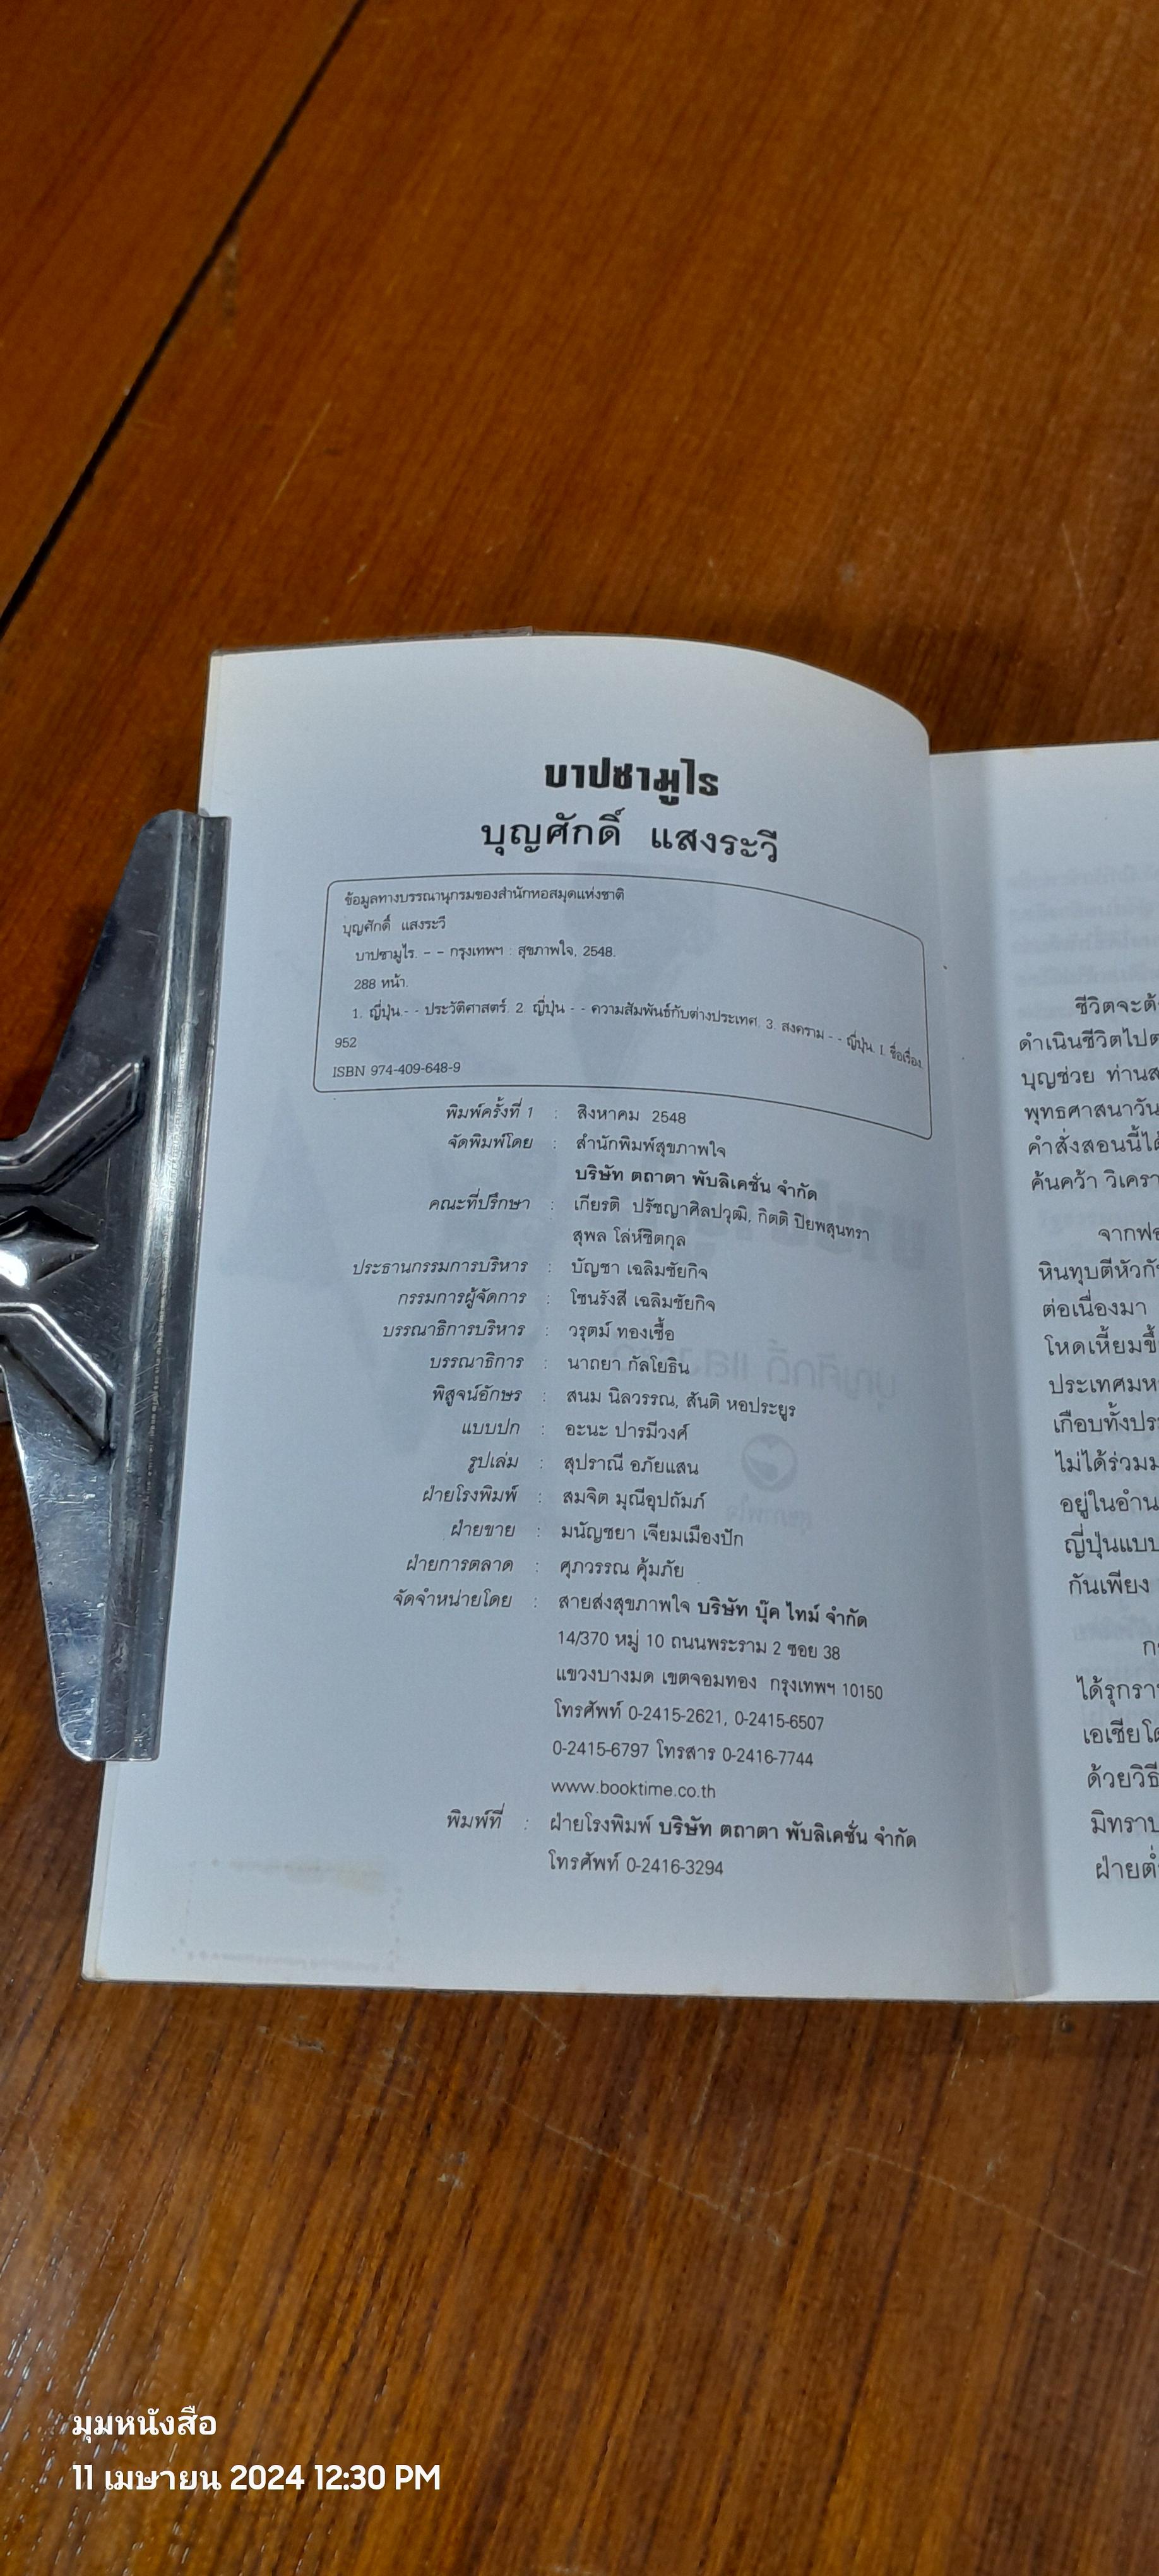 บาปซามูไร
บุญศักดิ์ แสงระวี
ข้อมูลทางบรรณานุกรมของสำนักหอสมุดแห่งชาติ
บุญศักดิ์ แสงระวี
บาปซามูไร. - - กรุงเทพฯ : สุขภาพใจ, 2548.
288 หน้า.
1. ญี่ปุ่น.- - ประวัติศาสตร์. 2. ญี่ปุ่น - - ความสัมพันธ์กับต่างประเทศ. 3. สงคราม - - ญี่ปุ่น. I. ชื่อเรื่อง.
952
ISBN 974-409-648-9
พิมพ์ครั้งที่ 1 : สิงหาคม 2548
จัดพิมพ์โดย : สำนักพิมพ์สุขภาพใจ
บริษัท ตถาตา พับลิเคชั่น จำกัด
คณะที่ปรึกษา : เกียรติ ปรัชญาศิลปวุฒิ, กิตติ ปิยพสุนทรา
สุพล โล่ห์ชิตกุล
ประธานกรรมการบริหาร : บัญชา เฉลิมชัยกิจ
กรรมการผู้จัดการ : โชนรังสี เฉลิมชัยกิจ
บรรณาธิการบริหาร : วรุตม์ ทองเชื้อ
บรรณาธิการ : นาถยา กัลโยธิน
พิสูจน์อักษร : สนม นิลวรรณ, สันติ หอประยูร
แบบปก : อะนะ ปารมีวงศ์
รูปเล่ม : สุปราณี อภัยแสน
ฝ่ายโรงพิมพ์ : สมจิต มุณีอุปถัมภ์
ฝ่ายขาย : มนัญชยา เจียมเมืองปัก
ฝ่ายการตลาด : ศุภวรรณ คุ้มภัย
จัดจำหน่ายโดย : สายส่งสุขภาพใจ บริษัท บุ๊ค ไทม์ จำกัด
14/370 หมู่ 10 ถนนพระราม 2 ซอย 38
แขวงบางมด เขตจอมทอง กรุงเทพฯ 10150
โทรศัพท์ 0-2415-2621, 0-2415-6507
0-2415-6797 โทรสาร 0-2416-7744
www.booktime.co.th
พิมพ์ที่ : ฝ่ายโรงพิมพ์ บริษัท ตถาตา พับลิเคชั่น จำกัด
โทรศัพท์ 0-2416-3294
ชีวิตจะต้
ดำเนินชีวิตไปต
บุญช่วย ท่านส
พุทธศาสนาวัน
คำสั่งสอนนี้ได้
ค้นคว้า วิเครา
จากฟอ
หินทุบตีหัวกั
ต่อเนื่องมา
โหดเหี้ยมขึ้
ประเทศมห
เกือบทั้งประ
ไม่ได้ร่วมม
อยู่ในอำน
ญี่ปุ่นแบบ
กันเพียง
ก
ได้รุกรา
เอเชียโด
ด้วยวิธี
มิทราบ
ฝ่ายต่
มุมหนังสือ
11 เมษายน 2024 12:30 PM